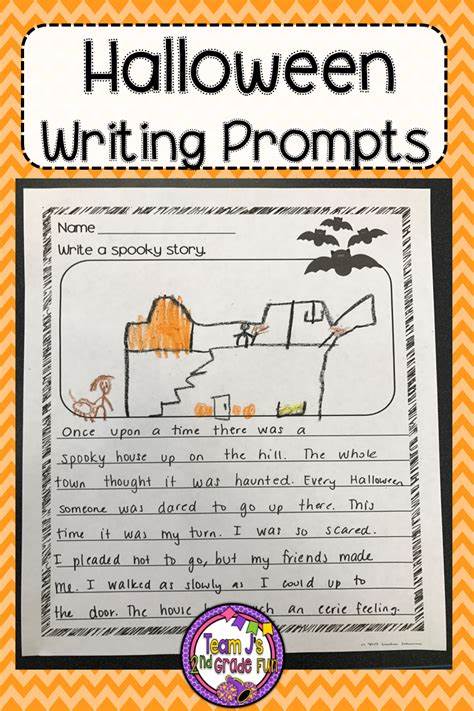 Halloween
Writing Prompts
Name
Write a spooky story.
Once upon a time there was a
spooky house up on the hill. The whole
town thought it was haunted. Every Halloween
someone was dared to go up there. This
time it was my turn. I was so scared.
I pleaded not to go, but my friends made
me. I walked as slowly as I could up to
the door. The house an eerie feeling.
Team J's
2nd Grade Fun